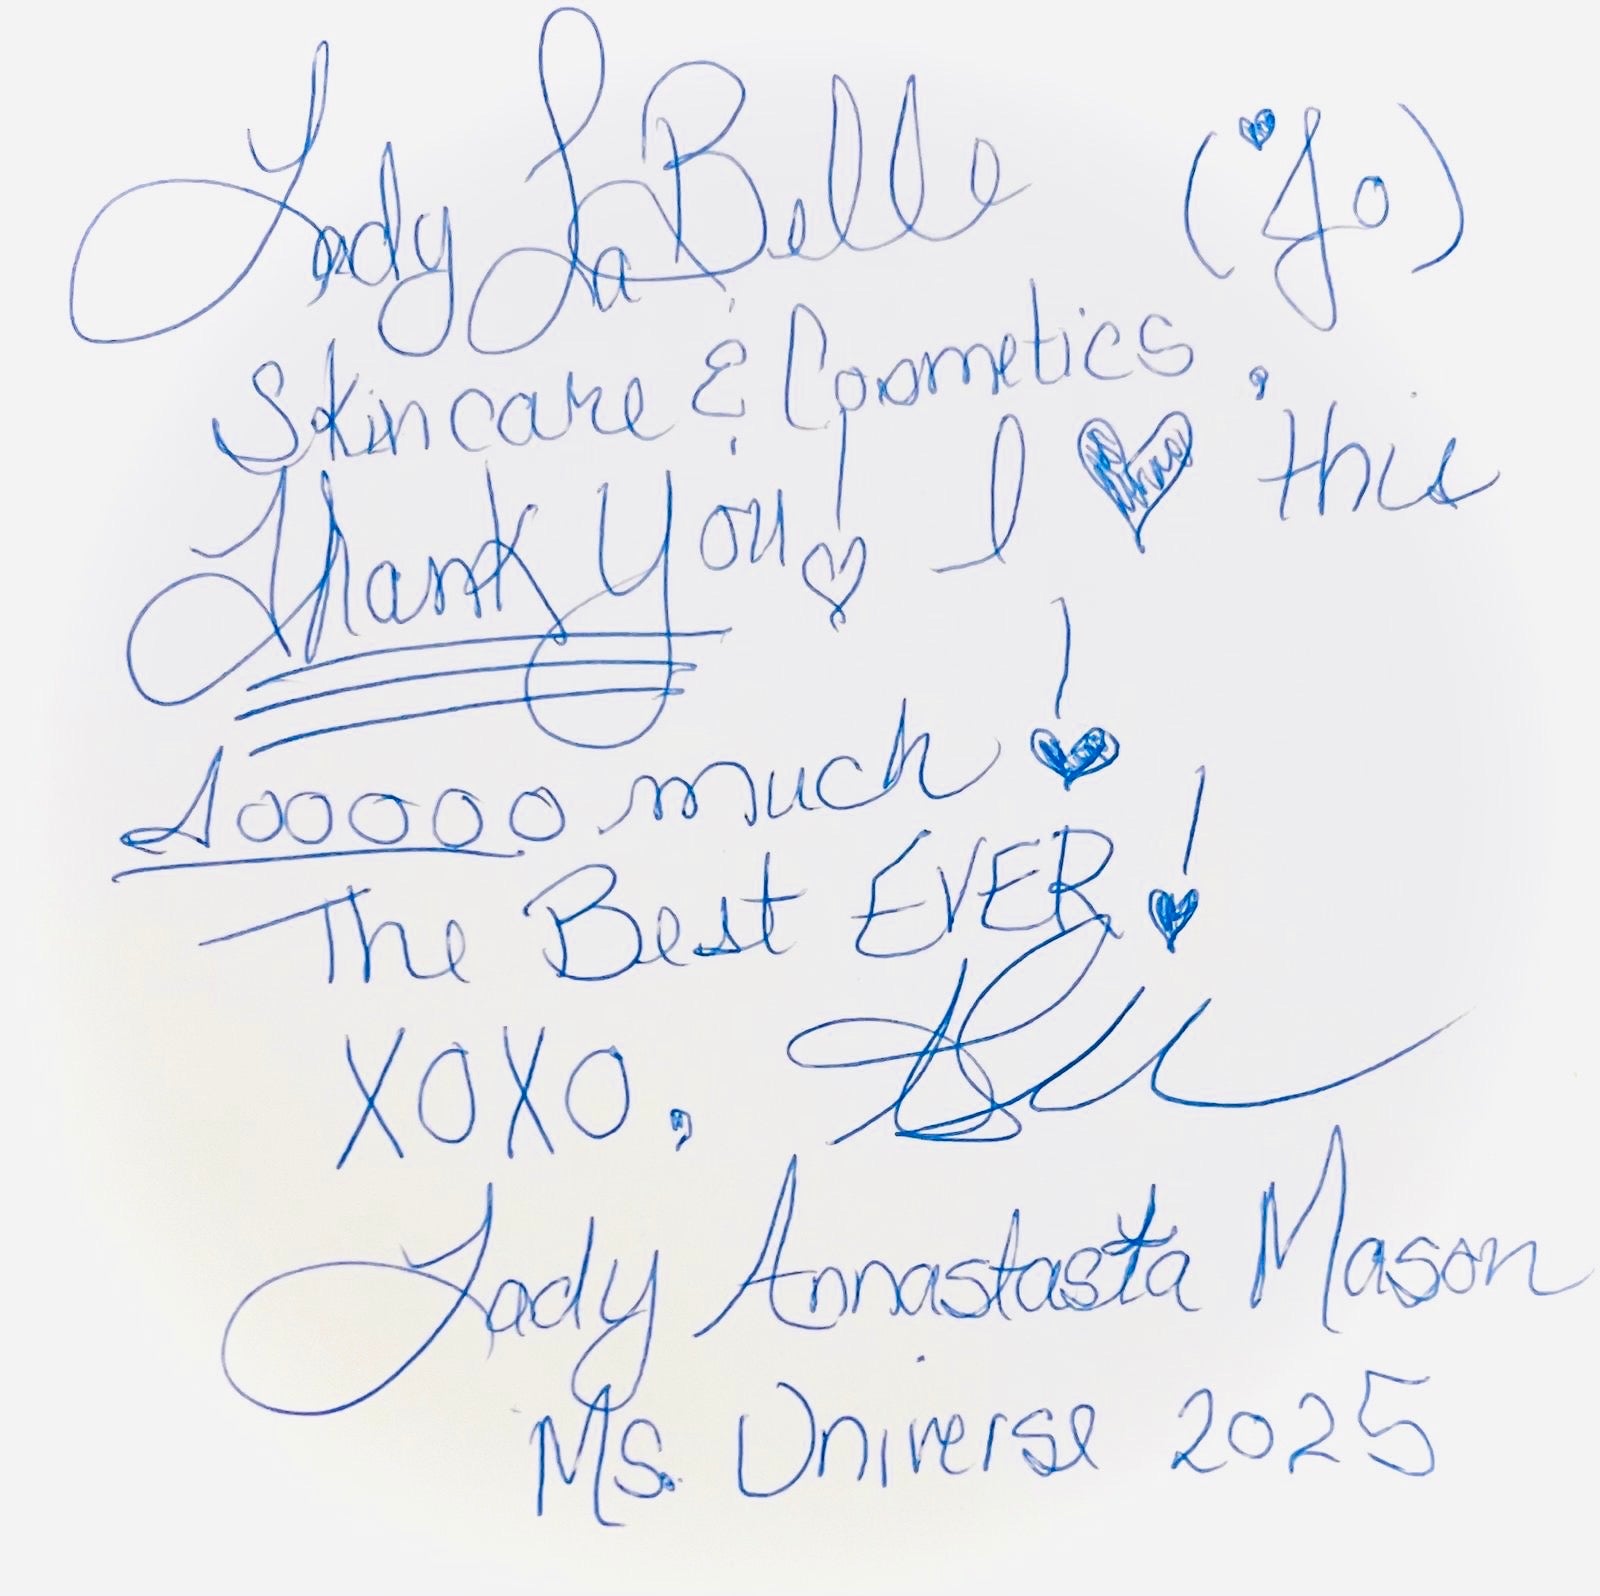 Lady LaBelle (Jo)
Skincare & Cosmetics,
Thank You! I ♥ this
sooooo much!
The Best EVER!
XOXO,
Lady Annastasta Mason
Ms. Universe 2025